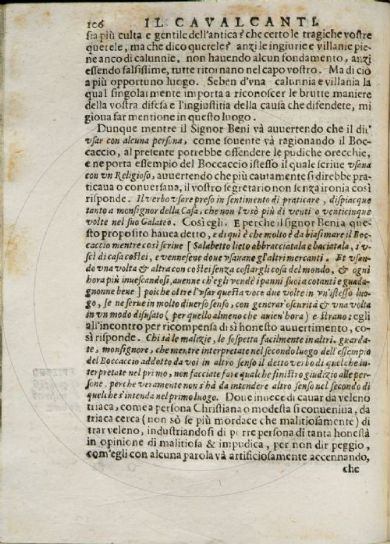 106 IL CAVALCANTI.
sia più culta e gentile dell'antica? che certo le tragiche vostre
querele, ma che dico querele? anzi le ingiurie e villanie pie-
ne anco di calunnie, non hauendo alcun fondamento, anzi
essendo falsissime, tutte ritornano nel capo vostro. Ma di ciò
a più opportuno luogo. Seben d'vna calunnia e villania la
qual singolarmente importa a riconoscer le brutte maniere
della vostra difesa e l'ingiustitia della causa che difendete, mi
gioua far mentione in questo luogo.
Dunque mentre il Signor Beni và auuertendo che il dir
vsar con alcuna persona, come souente và ragionando il Boc-
caccio, al presente potrebbe offendere le pudiche orecchie,
e ne porta essempio del Boccaccio stesso il qual scriue vsaua
con vn Religioso, auuertendo che più cautamente si direbbe pra-
ticaua o conuersaua, il vostro segretario non senza ironia così
risponde. Il verbo vsare preso in sentimento di praticare, dispiacque
tanto a monsignor della Casa, che non l'vsò più di venti o venticinque
volte nel suo Galateo. Così egli. E perche il signor Beni a que-
sto proposito hauea detto, e di qui è che molto è da biasimarsi il Boc-
caccio mentre così scriue [Salabetto lieto abbracciatala e baciatala, s'v-
scì di casa costei, e vennesene doue vsauano gl'altri mercanti. Et vsan-
do vna volta & altra con costei senza costargli cosa del mondo, & ogni
hora più inuescandosi, auenne ch'egli vendè i panni suoi a cotanti e guada-
gnonne bene] poiche oltre l'vsar questa voce due volte in vn'istesso luo-
go, se ne serue in molto diuerso senso, con generar' oscurità & vna volta
in vn modo disusato (per quello almeno che auien'hora) e strano: egli
all'incontro per ricompensa di sì honesto auuertimento, co-
sì risponde. Chi sà le malizie, le sospetta facilmente in altri. guarda-
te, monsignore, che mentre interpretate nel secondo luogo dell'essempio
del Boccaccio addotto da voi in altro senso il detto verbo di quel che in-
terpretate nel primo, non facciate fare qualche sinistro giudizio alle per-
sone, perche veramente non s'hà da intendere altro senso nel secondo di
quel che s'intenda nel primo luogo. Doue inuece di cauar da veleno
triaca, come a persona Christiana o modesta si conueniua, da
triaca cerca (non sò se più mordace che malitiosamente) di
trar veleno, industriandosi di porre persona di tanta honestà
in opinione di malitiosa & impudica, per non dir peggio,
com'egli con alcuna parola và artificiosamente accennando,
che